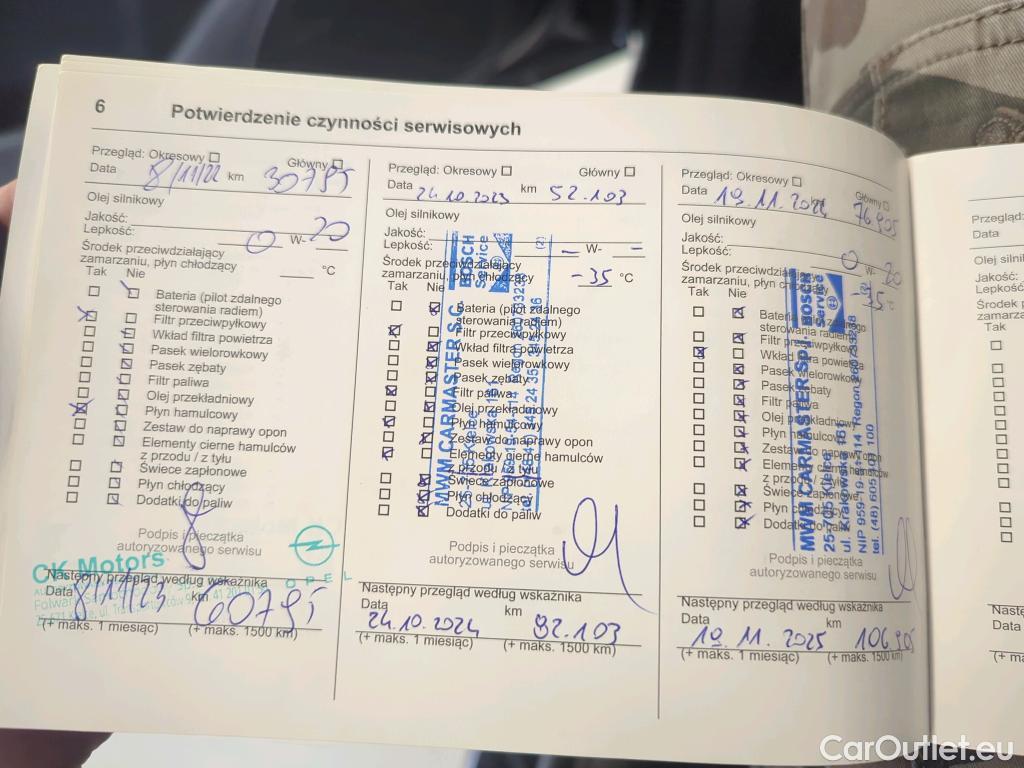 6 Potwierdzenie czynności serwisowych
Przegląd: Okresowy Główny
Data 8/11/22 km 30795
Olej silnikowy
Jakość:
Lepkość: 0 W- 20
Środek przeciwdziałający
zamarzaniu, płyn chłodzący °C
Tak Nie
Bateria (pilot zdalnego
sterowania radiem)
Filtr przeciwpyłkowy
Wkład filtra powietrza
Pasek wielorowkowy
Pasek zębaty
Filtr paliwa
Olej przekładniowy
Płyn hamulcowy
Zestaw do naprawy opon
Elementy cierne hamulców
z przodu / z tyłu
Świece zapłonowe
Płyn chłodzący
Dodatki do paliw
Podpis i pieczątka
autoryzowanego serwisu
CK Motors
OPEL
Następny przegląd według wskaźnika
Data 8/11/23 km 60795
(+ maks. 1 miesiąc) (+ maks. 1500 km)
Przegląd: Okresowy Główny
Data 24.10.2023 km 52.103
Olej silnikowy
Jakość:
Lepkość: – W- –
Środek przeciwdziałający
zamarzaniu, płyn chłodzący -35 °C
Tak Nie
Bateria (pilot zdalnego
sterowania radiem)
Filtr przeciwpyłkowy
Wkład filtra powietrza
Pasek wielorowkowy
Pasek zębaty
Filtr paliwa
Olej przekładniowy
Płyn hamulcowy
Zestaw do naprawy opon
Elementy cierne hamulców
z przodu / z tyłu
Świece zapłonowe
Płyn chłodzący
Dodatki do paliw
MWM CARMASTER S.C.
BOSCH
Service
(2)
Podpis i pieczątka
autoryzowanego serwisu
Następny przegląd według wskaźnika
Data 24.10.2024 km 92.103
(+ maks. 1 miesiąc) (+ maks. 1500 km)
Przegląd: Okresowy Główny
Data 19.11.2024 km 76.905
Olej silnikowy
Jakość:
Lepkość: 0 W- 20
Środek przeciwdziałający
zamarzaniu, płyn chłodzący -35 °C
Tak Nie
Bateria (pilot zdalnego
sterowania radiem)
Filtr przeciwpyłkowy
Wkład filtra powietrza
Pasek wielorowkowy
Pasek zębaty
Filtr paliwa
Olej przekładniowy
Płyn hamulcowy
Zestaw do naprawy opon
Elementy cierne hamulców
z przodu / z tyłu
Świece zapłonowe
Płyn chłodzący
Dodatki do paliw
MWM CARMASTER Sp.j.
BOSCH
Service
25-705 Kielce
ul. Krakowska 181
Podpis i pieczątka
autoryzowanego serwisu
Następny przegląd według wskaźnika
Data 19.11.2025 km 106.905
(+ maks. 1 miesiąc) (+ maks. 1500 km)
Przegląd:
Data
Olej silni
Jakość:
Lepkość
Środek prz
zamarza
Tak
Następ
Data
(+ m
CarOutlet.eu